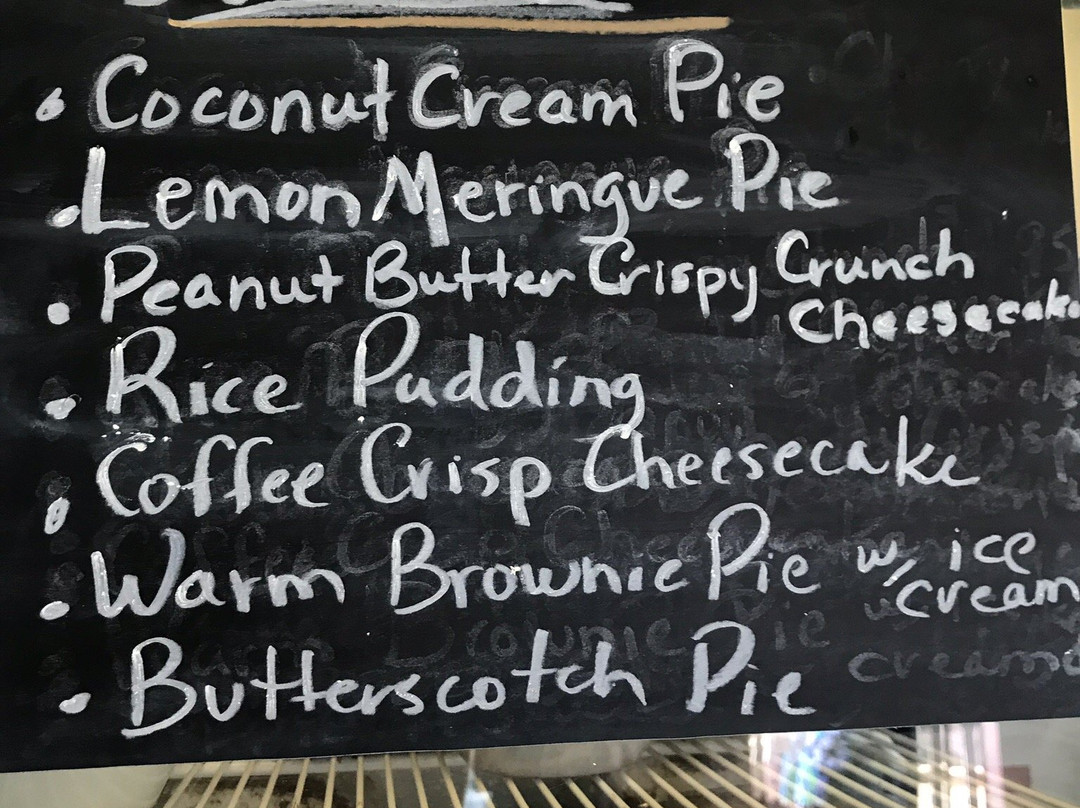 • Coconut Cream Pie
• Lemon Meringue Pie
• Peanut Butter Crispy Crunch
Cheesecake
• Rice Pudding
• Coffee Crisp Cheesecake
• Warm Brownie Pie w/ ice
cream
• Butterscotch Pie